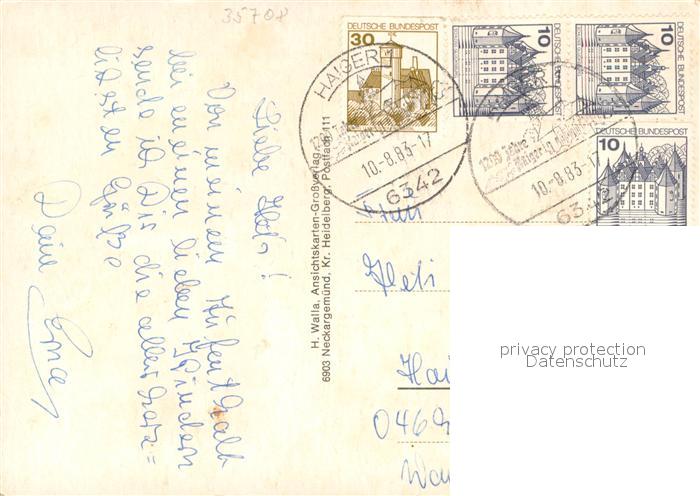 35708
Liebe
Von meinem Aufenthalt
bei meinen lieben Kindern
sende ich Dir die allerherz=
lichsten Grüße
Deine
Erna
H. Walla, Ansichtskarten-Großverlag,
6903 Neckargemünd, Kr. Heidelberg, Postfach 111
DEUTSCHE BUNDESPOST
30
DEUTSCHE BUNDESPOST
10
DEUTSCHE BUNDESPOST
10
DEUTSCHE BUNDESPOST
10
HAIGER
1200 Jahre
10.-8.83-17
6342
1200 Jahre
10.-8.83-17
6342
Heli
Hai
046
privacy protection
Datenschutz